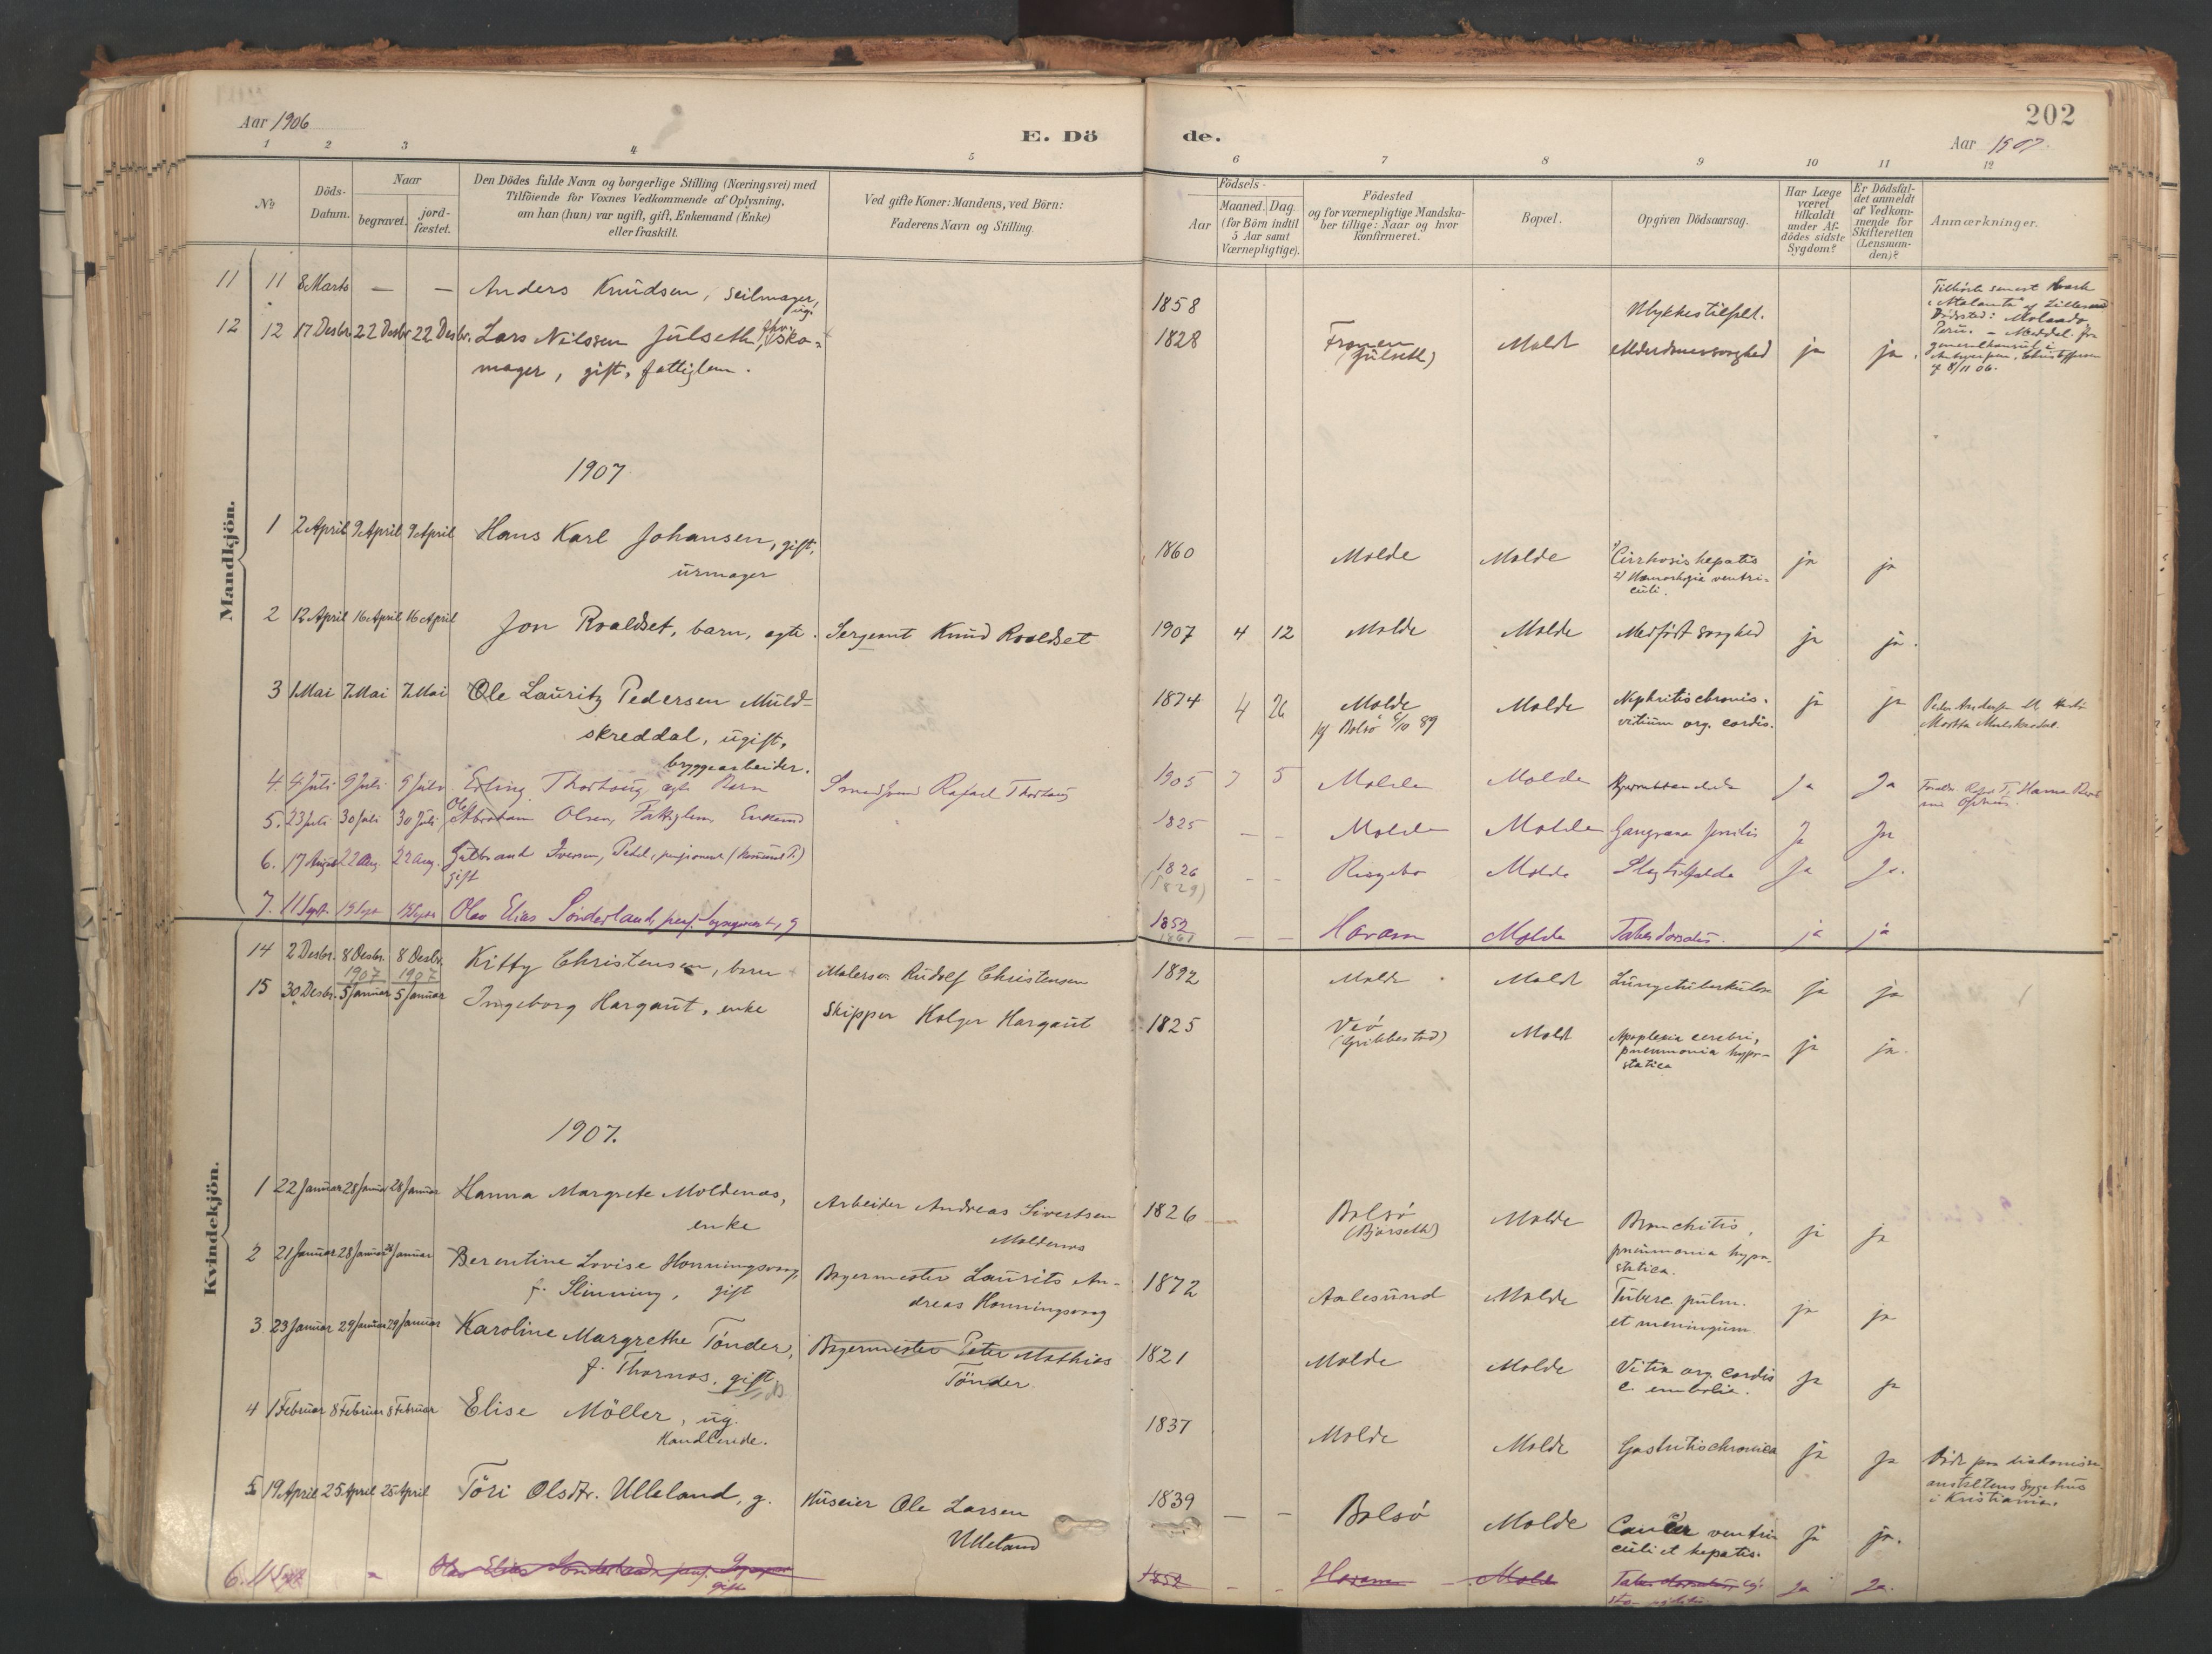 202
Aar 1906
E. Dö
de.
Aar 1907.
1 2 3 4 5 6 7 8 9 10 11 12
No
Döds-
Datum.
Naar
begravet.
jord-
fæstet.
Den Dödes fulde Navn og borgerlige Stilling (Næringsvei) med
Tilföiende for Voxnes Vedkommende af Oplysning,
om han (hun) var ugift, gift, Enkemand (Enke)
eller fraskilt.
Ved gifte Koner: Mandens, ved Börn:
Faderens Navn og Stilling.
Födsels-
Aar
Maaned. Dag.
(for Börn indtil
5 Aar samt
Værnepligtige).
Födested
og for værnepligtige Mandska-
ber tillige: Naar og hvor
konfirmeret.
Bopæl.
Opgiven Dödsaarsag.
Har Læge
været
tilkaldt
under Af-
dödes sidste
Sygdom?
Er Dödsfal-
det anmeldt
af Vedkom-
mende for
Skifteretten
(Lensman-
den)?
Anmærkninger.
Mandkjön.
11 11 8 Marts — — Anders Knudsen, seilmager,
ug.
1858 Ulykkestilfelt.
12 12 17 Desbr. 22 Desbr. 22 Desbr. Lars Nilssen Julseth, fhv. sko-
mager, gift, fattiglem.
1828 Fronen
(Julseth) Molde Alderdomssvaghed ja ja.
1907
1 2 April 9 April 9 April Hans Karl Johansen, gift,
urmager
1860 Molde Molde 1) Cirrhosis hepatis
2) Hæmorhagia ventri-
culi. ja ja
2 12 April 16 April 16 April Jon Roaldset, barn, ægte. Sergeant Knud Roaldset 1907 4 12 Molde Molde Medfödt svaghed ja ja.
3 1 Mai 7 Mai 7 Mai Ole Lauritz Pedersen Muld-
skreddal, ugift,
bryggearbeider.
1874 4 26 Molde
kf Bolsö 6/10 89 Molde Nephritis chronic.
vitium org. cordis. ja ja
4. 4 Juli 9 Juli 9 Juli Erling Thorhaug ægte Barn Rafael Thorhaug 1905 7 5 Molde Molde Ja Ja
5. 23 Juli 30 Juli 30 Juli Ole
Abraham Olsen, Fattiglem, Enkemd 1825 — — Molde Molde Gangræna senilis Ja Ja
6. 17 August 22 Aug. 22 Aug. Gulbrand Iversen,
gift
1826
(1829) - - Ringebo Molde Slagtilfælde Ja Ja.
7. 11 Sept. Olav Elias Sönderland, 1852
— — Haram Molde Tabes dorsalis. ja ja
Kvindekjön.
14 2 Desbr. 8 Desbr. 8 Desbr. Kitty Christensen, barn Malersv. Rudolf Christensen 1892 Molde Molde Lungetuberkulose ja ja
1907 1907
15 30 Desbr. 5 Januar 5 Januar Ingeborg Hargaut, enke Skipper Holger Hargaut 1825 Veö
(Gribbestad) Molde Apoplexia cerebri,
pneumonia hypo-
statica ja ja.
1907.
1 22 Januar 28 Januar 28 Januar Hanna Margrete Moldenæs,
enke
Arbeider Andreas Sivertsen
Moldenæs
1826 Bolsö
(Bjørseth) Molde Bronchitis,
pneumonia hypo-
statica. ja ja
2 21 Januar 28 Januar 28 Januar Berentine Lovise Honningsvaag,
f. Slinning, gift
Bagermester Laurits An-
dreas Honningsvaag
1872 Aalesund Molde Tuberc. pulm.
et meningum ja ja
3 23 Januar 29 Januar 29 Januar Karoline Margrethe Tönder,
f. Thornæs, gift
Bagermester Peter Mathias
Tönder
1821 Molde Molde Vitia org. cordis
c. embolia. ja ja
4 1 Februar 8 Februar 8 Februar Elise Möller, ug.
Handlende.
1837 Molde Molde Gastritis chronica ja ja
Död paa diakonisse
anstaltens sygehus
i Kristiania.
5 19 April 25 April 25 April Töri Olsdtr. Ulleland, g. Huseier Ole Larsen
Ulleland
1839 — — Bolsö Molde Cancer ventri
culi et hepatis. ja ja.
6. 11 Sept. Olav Elias Sönderland
gift
1852 - - Haram Molde Tabes dorsalis Ja Ja.